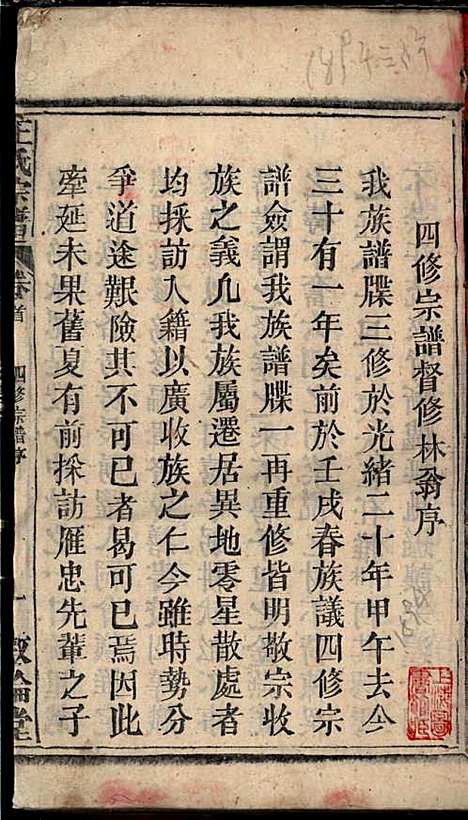 四修宗譜督修林翁序
我族譜牒三修於光緒二十年甲午去今
三十有一年矣前於壬戌春族議四修宗
譜僉謂我族譜牒一再重修皆明敬宗收
族之義凢我族屬遷居異地零星散處者
均採訪入籍以廣收族之仁今雖時勢分
爭道途艱險其不可已者曷可已焉因此
牽延未果舊夏有前採訪雁忠先輩之子
王氏宗譜
卷首
四修宗譜序
一
敦倫堂